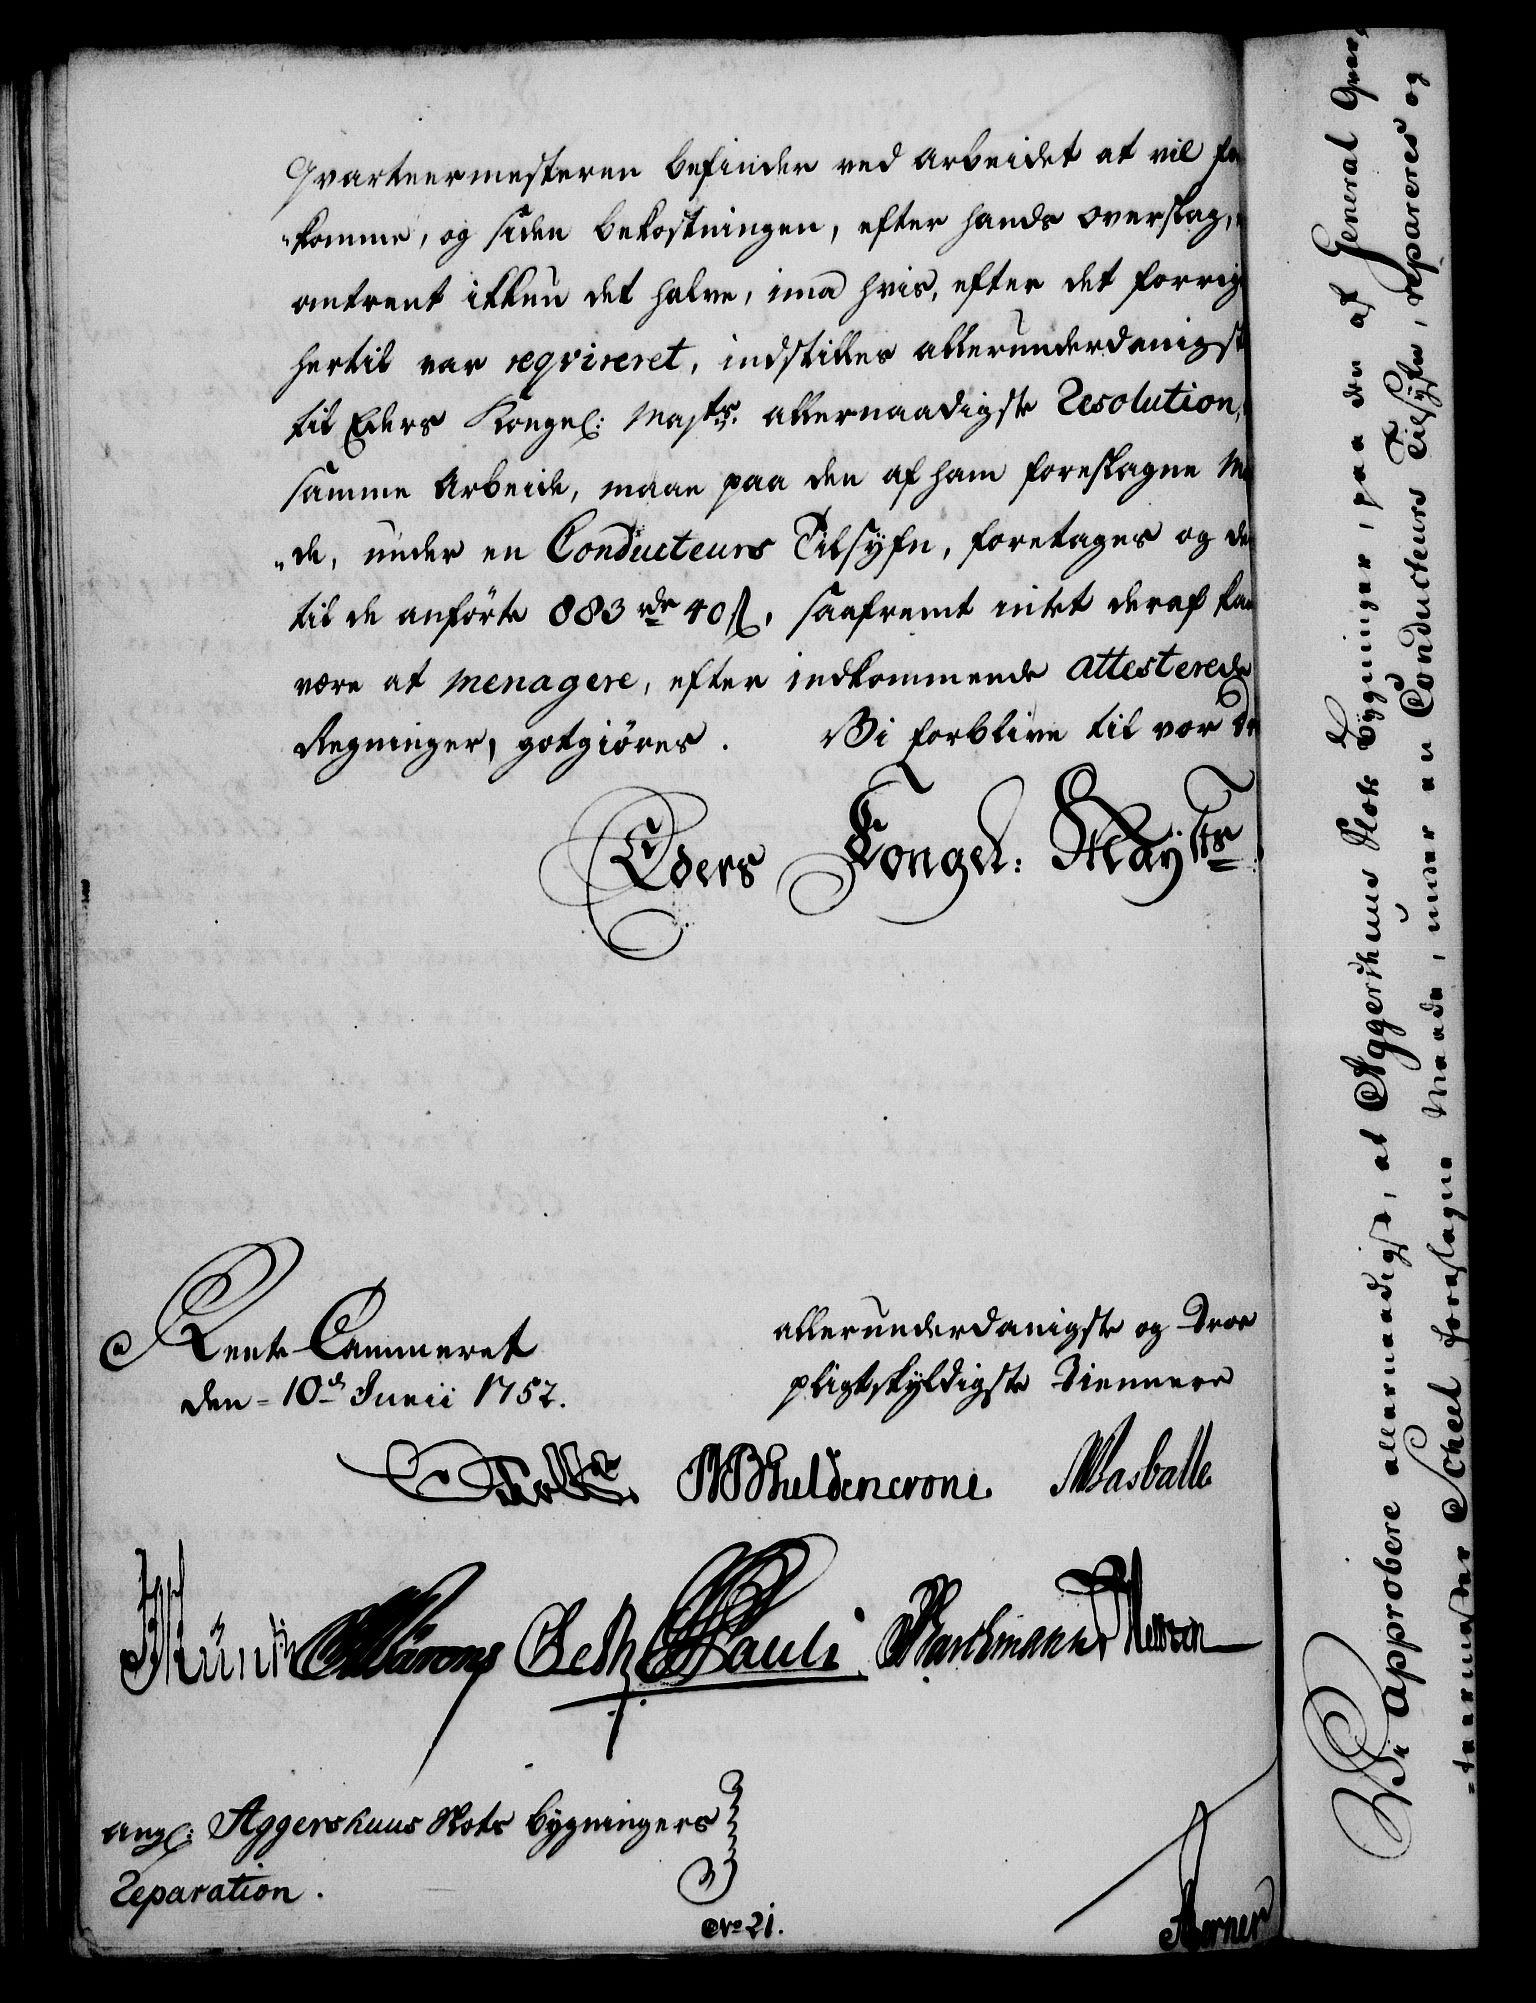 Qvarteermesteren befinder ved Arbeidet at vil
"komme, og siden bekostningen, efter hands Overslag,
omtrent ikkun det halve, imod hvis, efter det forrig
hertil var reqvireret, indstilles allerunderdanigst
til Eders Kongel: Maysts: allernaadigste Resolution,
samme Arbeide, maae paa den af ham foreslagne Ma
"de, under en Conducteurs Tilsyfn, foretages og de
til de anførte 883 rdr 40 ß, saafremt intet deraf kan
være at menagere, efter indkommende attesterede
Regninger, gotgiøres. Vi forblive til vor
Eders Kongel: Maysts:
Rente Cammeret
den - 10de Junii 1752.
allerunderdanigste og Troe
pligtskyldigste Tiennere
Guldencrone. Wasballe
Pauli
angl: Aggershuus Slots bygningers
Reparation.
No 21.
Vi approbere allernaadigst, at Aggershuus Slots Bygninger, paa den af General Qvar
"teermester Scheel foreslagne Maade, under en Conducteurs Tilsyfn, repareres og